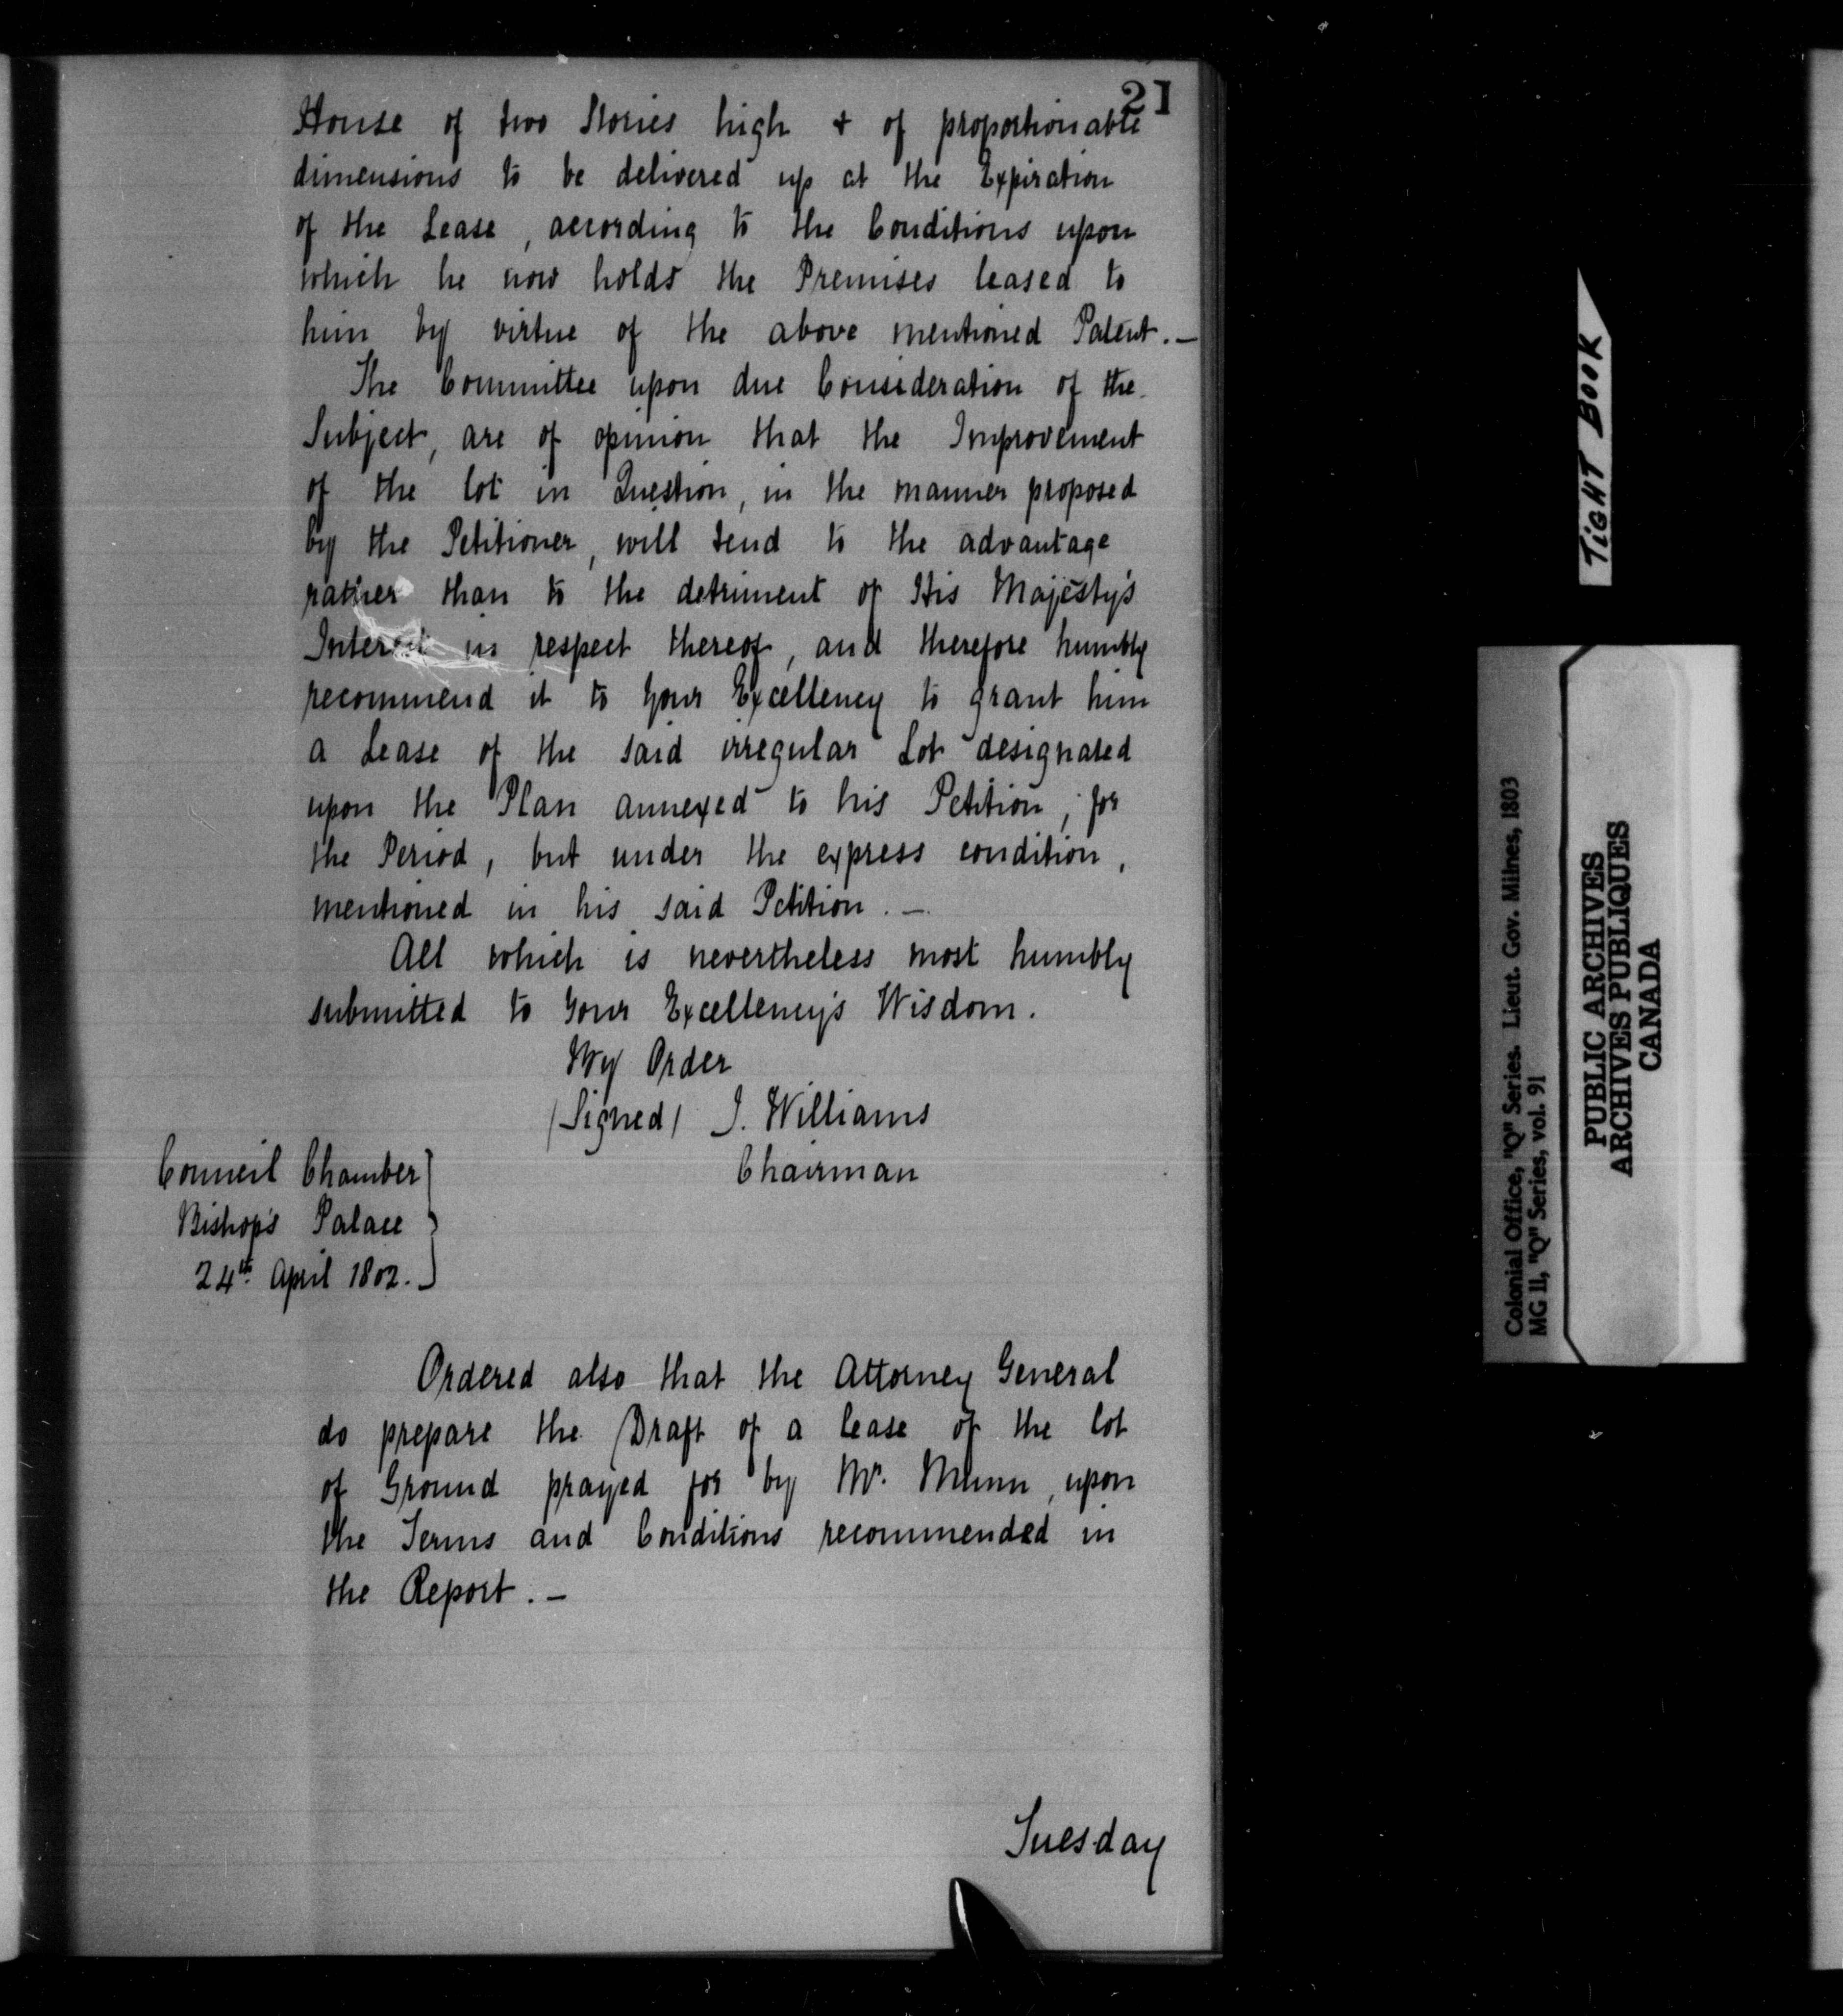 21
House of two Stories high & of proportionable
dimensions to be delivered up at the Expiration
of the Lease, according to the Conditions upon
which he now holds the Premises leased to
him by virtue of the above mentioned Patent.—
The Committee upon due Consideration of the
Subject, are of opinion that the Improvement
of the lot in Question, in the manner proposed
by the Petitioner, will tend to the advantage
rather than to the detriment of His Majesty's
Interest in respect thereof, and therefore humbly
recommend it to Your Excellency to grant him
a Lease of the said irregular Lot designated
upon the Plan annexed to his Petition, for
the Period, but under the express condition,
mentioned in his said Petition.—
All which is nevertheless most humbly
submitted to Your Excellency's Wisdom.
By Order
/Signed/ J. Williams
Chairman
Council Chamber
Bishop's Palace
24th April 1802.
Ordered also that the Attorney General
do prepare the Draft of a lease of the lot
of Ground prayed for by Mr. Munn, upon
the Terms and Conditions recommended in
the Report.—
Tuesday
TIGHT BOOK
Colonial Office, "Q" Series. Lieut. Gov. Milnes, 1803
MG 11, "Q" Series, vol. 91
PUBLIC ARCHIVES
ARCHIVES PUBLIQUES
CANADA